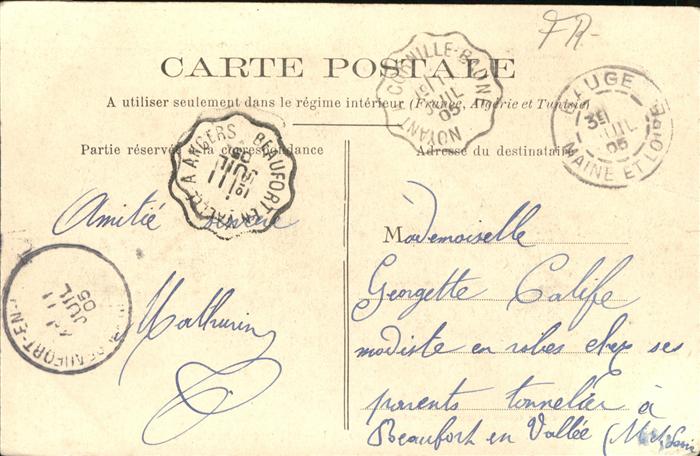 FR-
CARTE POSTALE
A utiliser seulement dans le régime intérieur (France, Algérie et Tunisie)
Partie réservée à la correspondance
Adresse du destinataire
CORNILLE-BAUN
JUIL
05
NOYANT
BAUGÉ
3E
JUIL
05
MAINE ET LOIRE
BEAUFORT-EN-VALLÉE A ANGERS
11
JUIL
05
11
JUIL
05
BEAUFORT-EN-
Amitié sincère
Mathurin
Mademoiselle
Georgette Calife
modiste en robes chez ses
parents tonnelier à
Beaufort en Vallée (M et Loire